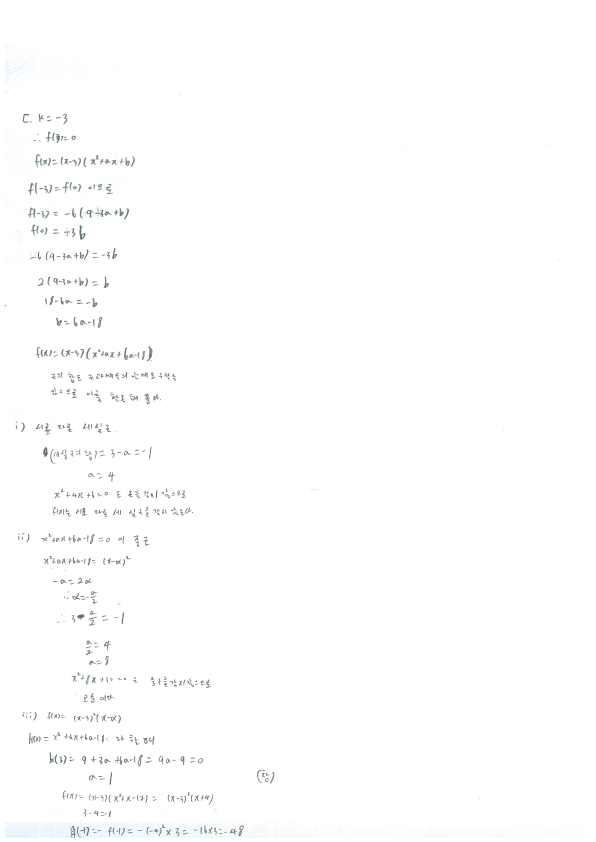 ㄷ. k=-3
∴ f(3)=0
f(x)=(x-3)(x²+ax+b)
f(-3)=f(0) 이므로
f(-3) = -6(9-3a+b)
f(0) = -3b
-6(9-3a+b)=-3b
2(9-3a+b)=b
18-6a=-b
b=6a-18
f(x)=(x-3)(x²+ax+6a-18)
근의 합은
이를
i) 서로 다른 세실근.
(세실근의 합)=3-a=-1
a=4
x²+4x+6=0 은 근을 갖지 않으므로
f(x)는 서로 다른 세 실근을 갖지 않는다.
ii) x²+ax+6a-18=0 이 중근
x²+ax+6a-18=(x-α)²
-a=2α
∴ α=-a/2
∴ 3-a/2=-1
a/2=4
a=8
x²+8x+30=0 은 중근을 갖지않으므로
모순이다.
iii) f(x)=(x-3)²(x-α)
h(x)=x²+ax+6a-18 라 하면
h(3)=9+3a+6a-18=9a-9=0
a=1
(참)
f(x)=(x-3)(x²+x-12)=(x-3)²(x+4)
3-4=-1
g(-1)=-f(-1)=-(-4)²×3=-16×3=-48